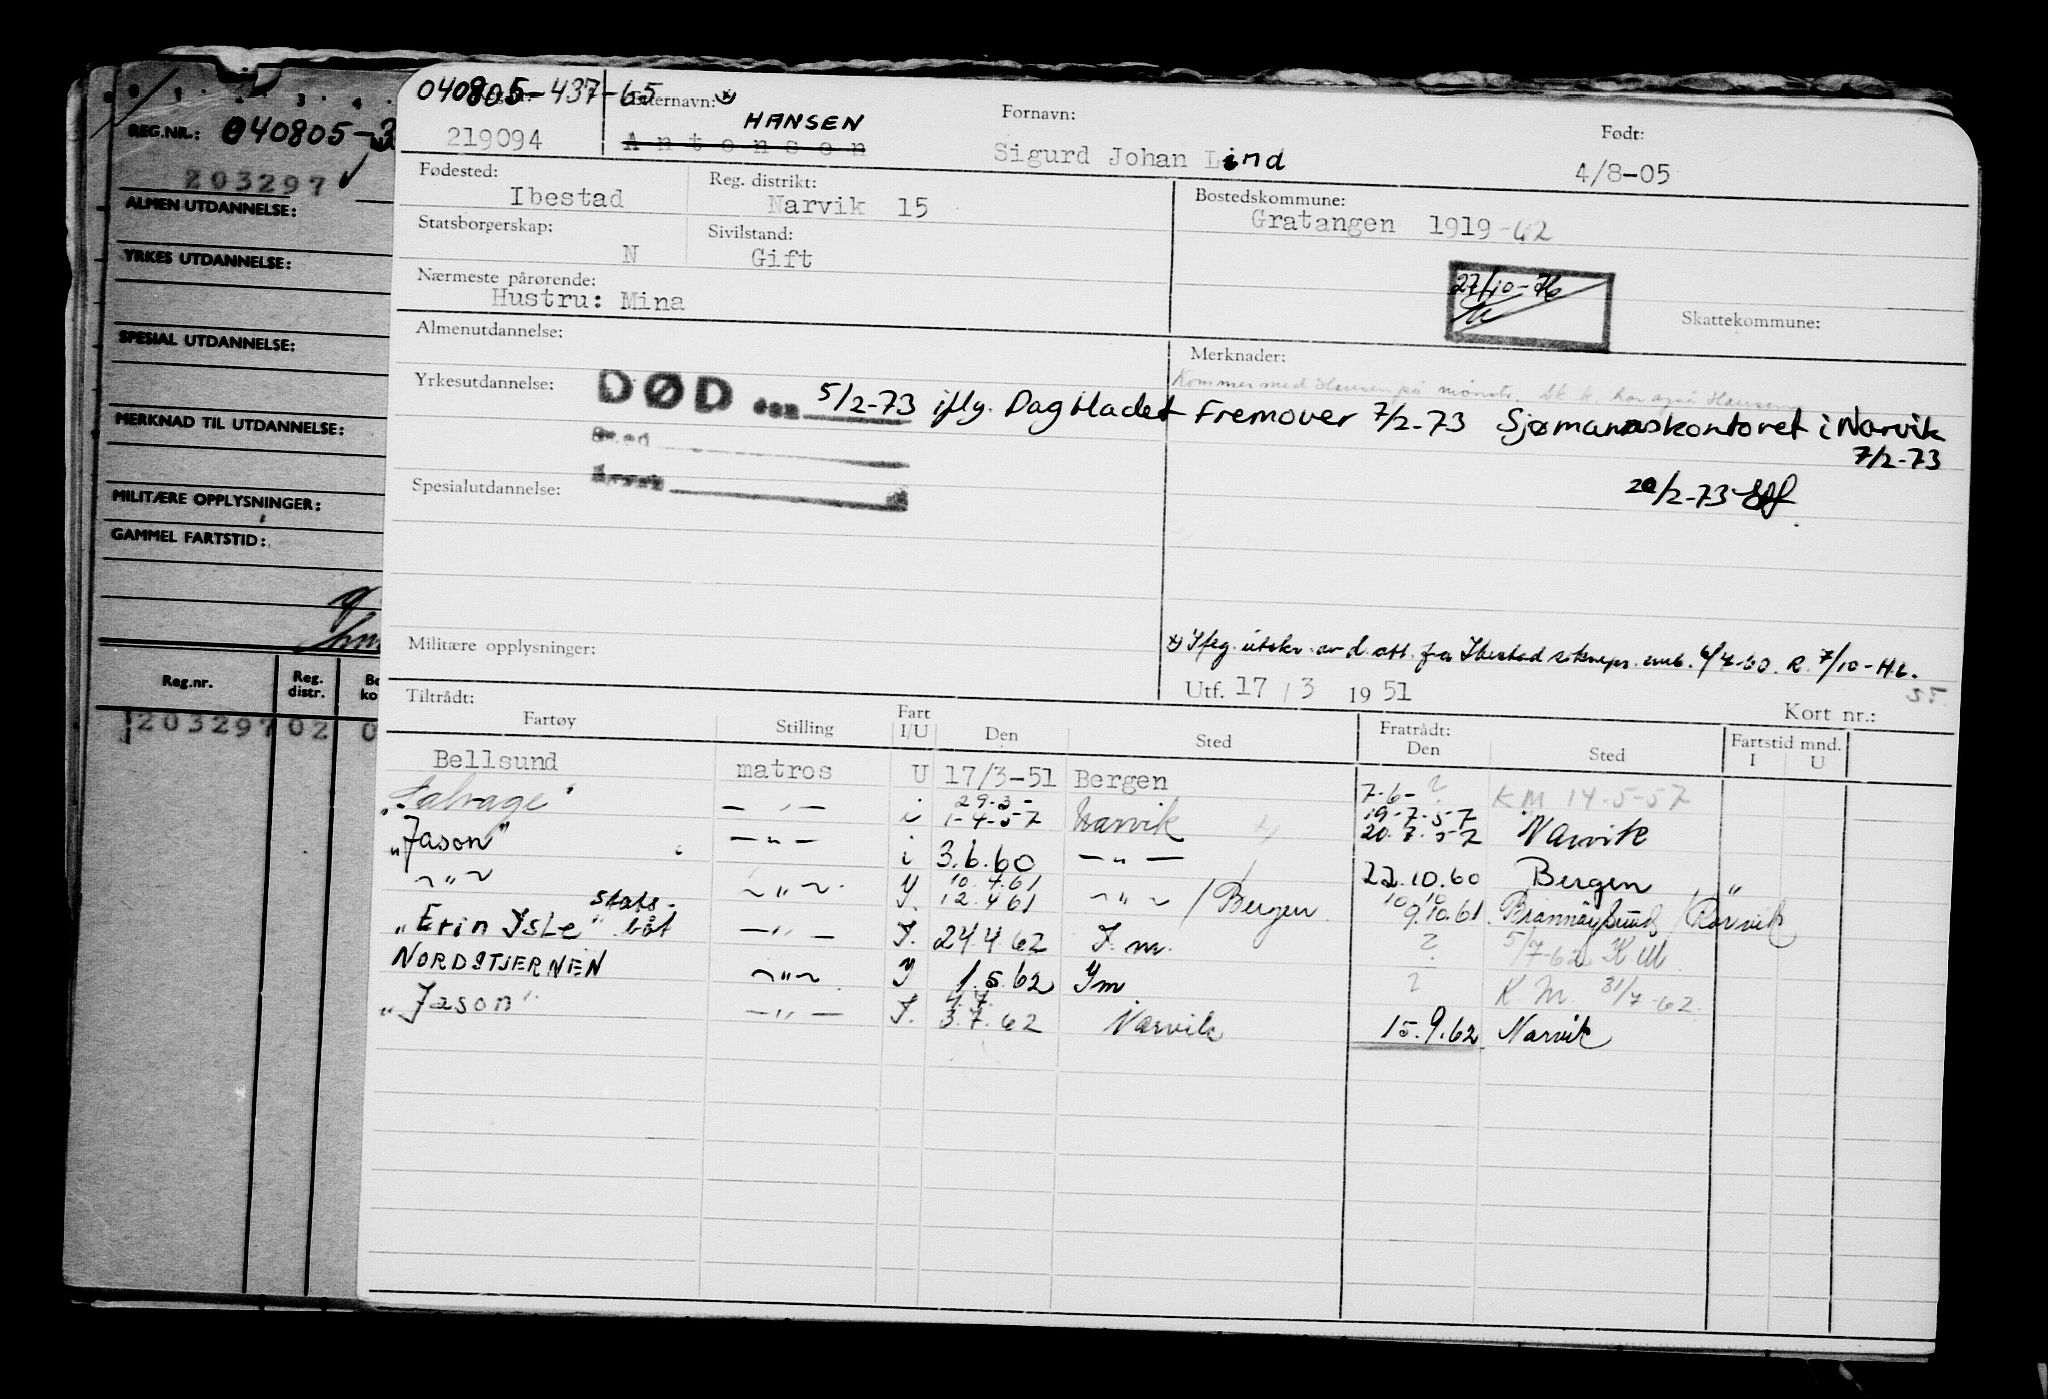 REG.NR.: 040805-3
203297
ALMEN UTDANNELSE:
YRKES UTDANNELSE:
SPESIAL UTDANNELSE:
MERKNAD TIL UTDANNELSE:
MILITÆRE OPPLYSNINGER:
GAMMEL FARTSTID:
Reg.nr. Reg. distr.
203297 02 0
040805-437-65 Etternavn: HANSEN Fornavn: Født:
219094 Antonsen Sigurd Johan Lind 4/8-05
Fødested: Reg. distrikt: Bostedskommune:
Ibestad Narvik 15 Gratangen 1919-62
Statsborgerskap: Sivilstand:
N Gift
Nærmeste pårørende: 27/10-76
Hustru: Mina Skattekommune:
Almenutdannelse: Merknader:
Kommer med Hansen på mønstr. har også Hansen
Yrkesutdannelse: DØD den 5/2-73 iflg. Dagbladet Fremover 7/2-73 Sjømannskontoret i Narvik
7/2-73
Sted
Årsak
Spesialutdannelse: 20/2-73
Militære opplysninger: x) Iflg. utskr. av d. att. fra Ibestad soknepr. emb. 6/4-60. R. 7/10-
Utf. 17/3 1951 55
Tiltrådt: Kort nr.:
Fartøy Stilling Fart I/U Den Sted Fratrådt: Den Sted Fartstid mnd. I U
Bellsund matros U 17/3-51 Bergen 7-6- ? K.M 14-5-57
"Salvage" — " — i 29-3- 1-4-57 Narvik 19-7-57 20.7.57 Narvik
"Jason" — " — i 3.6.60 — " — 22.10.60 Bergen
~ " ~ ~ " ~ Y. 10.4.61 12.4 61 ~ " ~ / Bergen 10 10 9.10.61 Brønnøysund / Rørvik
"Erin Isle" stats. båt — " — I. 24.4.62 I. m. ? 5/7-62 K M
NORDSTJERNEN ~ " ~ Y 1.5.62 Ym ? K.M. 31/7-62
"Jason" — " — I. 4.7. 3.7.62 Narvik 15.9.62 Narvik